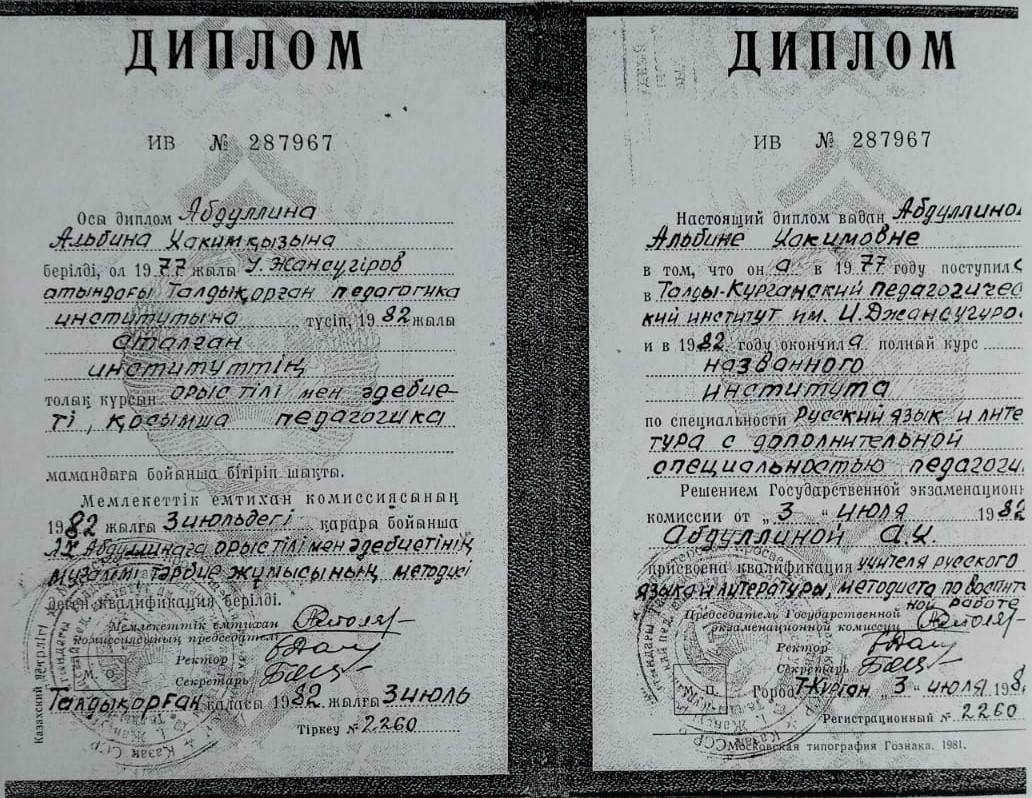 ДИПЛОМ
ИВ № 287967
Осы диплом Абдуллина
Альбина Хакимқызына
берілді, ол 1977 жылы І. Жансүгіров
атындағы Талдықорған педагогика
институтына түсіп, 1982 жылы
аталған
институттің
толық курсын орыс тілі мен әдебие-
ті, қосымша педагогика
мамандығы бойынша бітіріп шықты.
Мемлекеттік емтихан комиссиясының
1982 жылғы 3 июльдегі қарары бойынша
А.Х. Абдуллинаға орыс тілі мен әдебиетінің
мұғалімі тәрбие жұмысының методисі
деген квалификация берілді.
Мемлекеттік емтихан
комиссиясының председателі
Ректор
Секретарь
М. О.
Талдықорған қаласы 1982 жылғы 3 июль
Тіркеу № 2260
ДИПЛОМ
ИВ № 287967
Настоящий диплом выдан Абдуллиной
Альбине Хакимовне
в том, что он а в 1977 году поступил
в Талды-Курганский педагогичес
кий институт им. И. Джансугуро
и в 1982 году окончила полный курс
названного
института
по специальности Русский язык и лите
тура с дополнительной
специальностью педагоги
Решением Государственной экзаменацион
комиссии от „3“ июля 1982
Абдуллиной А.Х.
присвоена квалификация учителя русского
языка и литературы, методиста по воспит
ной работе
Председатель Государственной
экзаменационной комиссии
Ректор
Секретарь
М. П.
Город Т-Курган „3“ июля 198
Регистрационный № 2260
Московская типография Гознака. 1981.